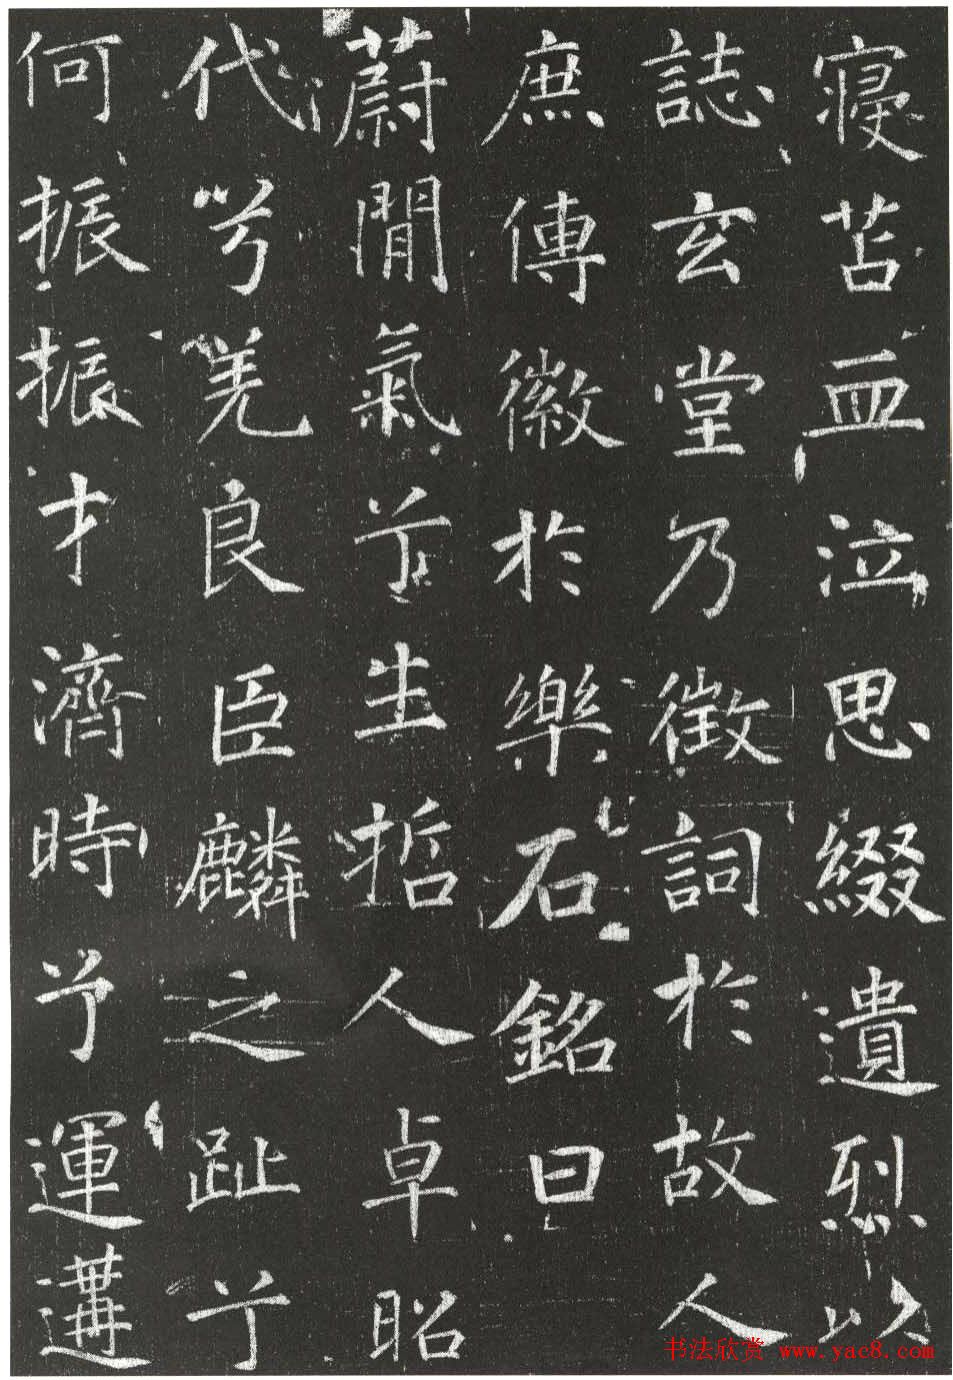 寝苫血泣思綴遺烈以
誌玄堂乃徵詞於故人
庶傳徽於樂石銘曰
蔚間氣兮生哲人卓昭
代兮羌良臣麟之趾兮
何振振才濟時兮運遘
书法欣赏 www.yac8.com